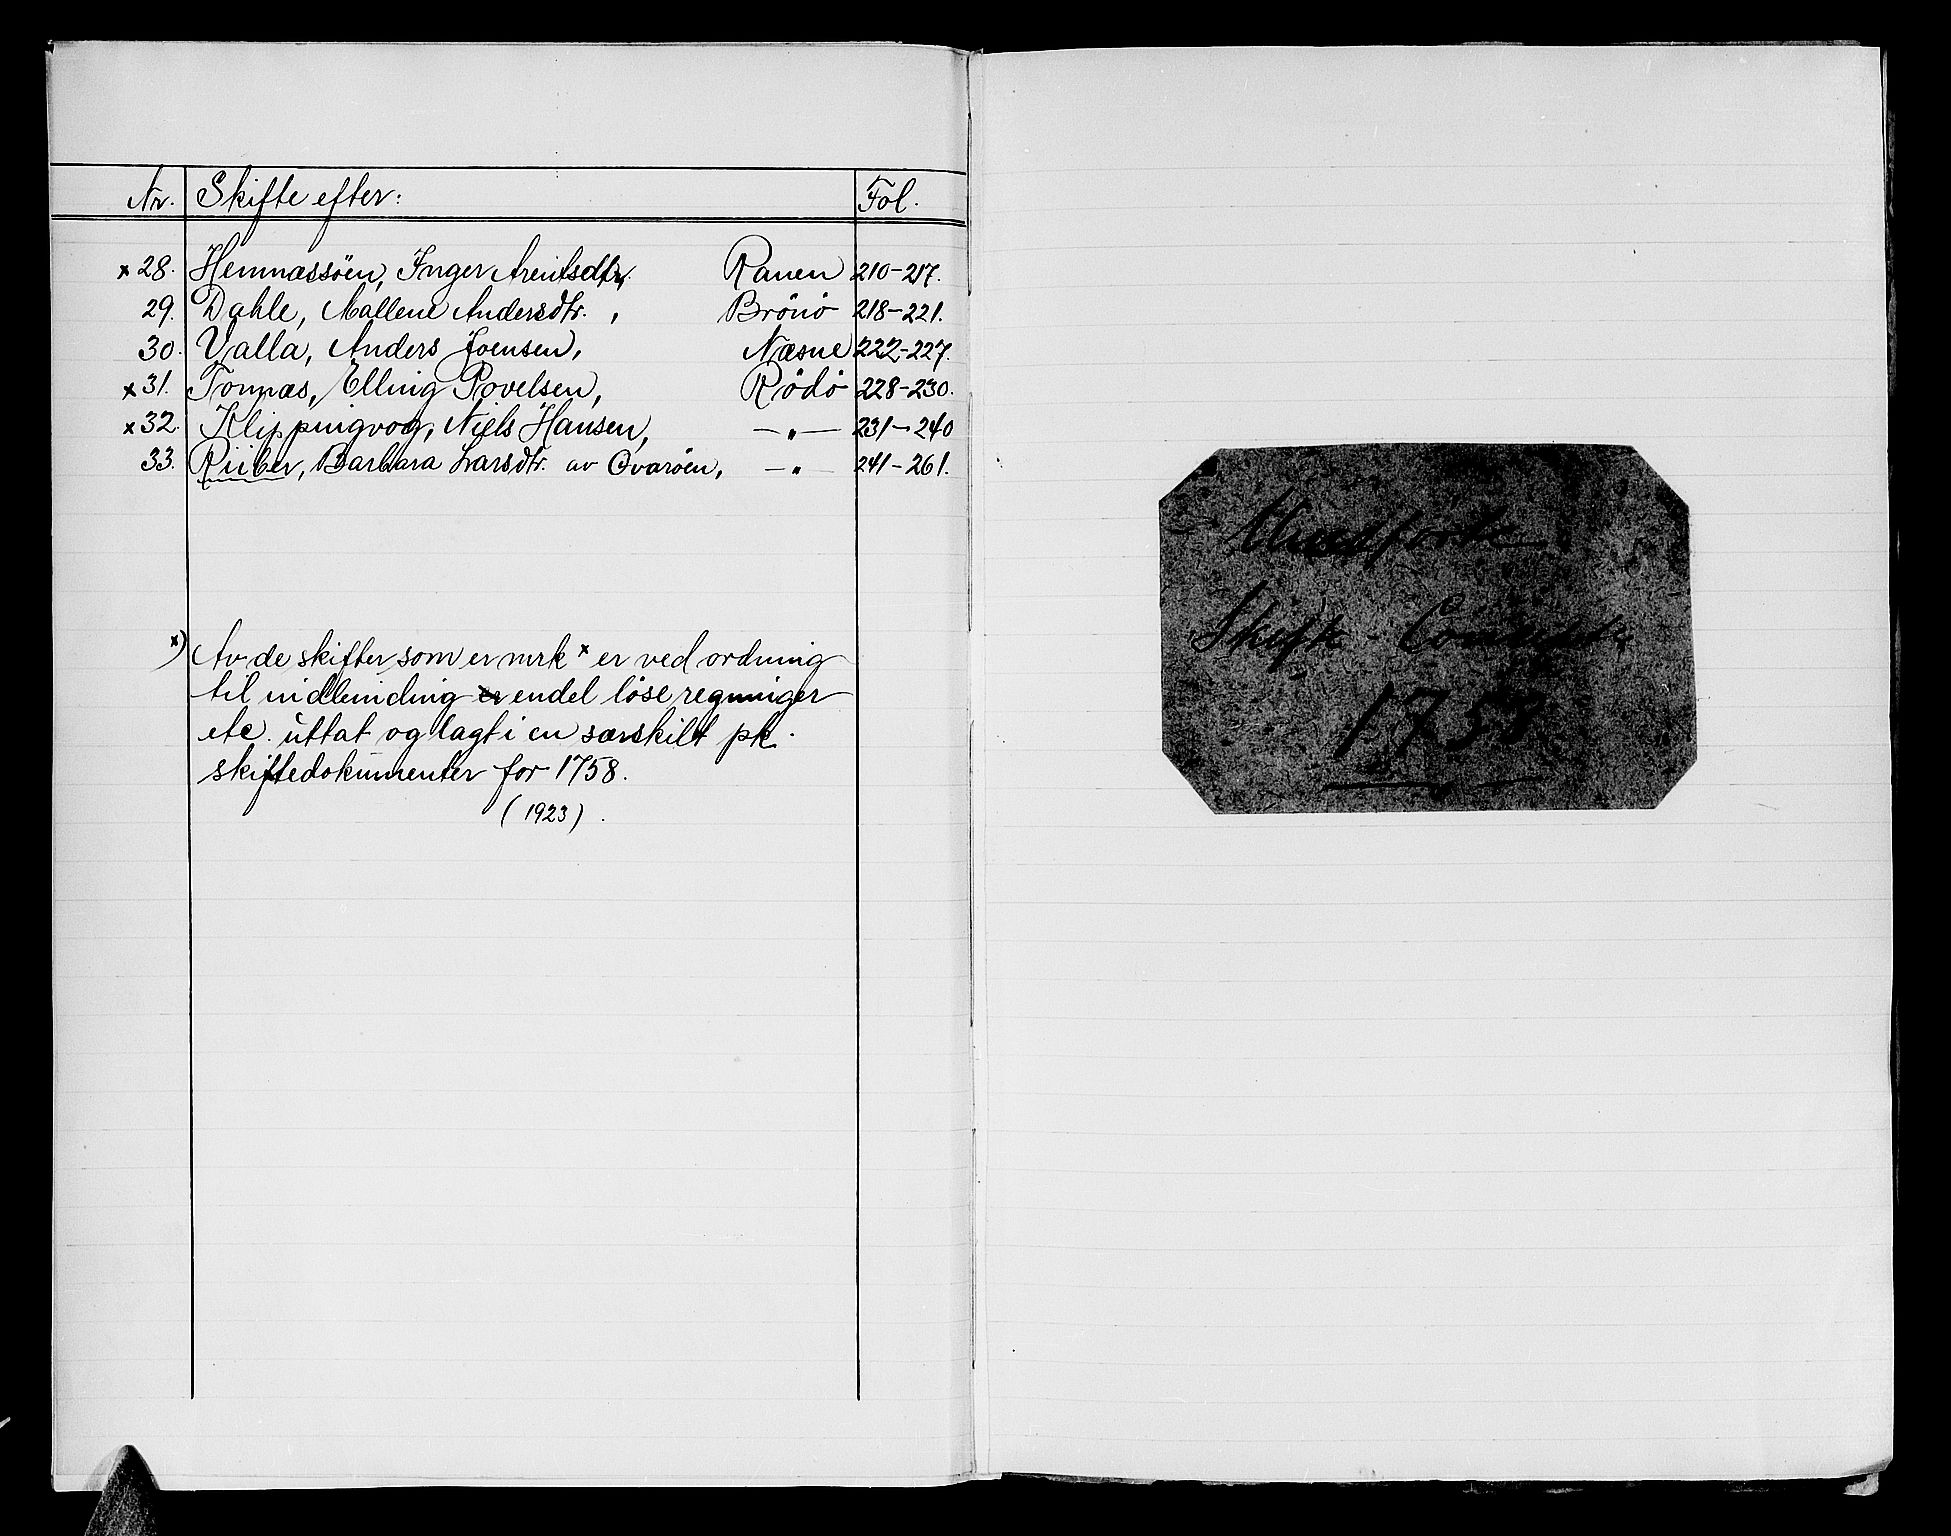 Nr. Skifte efter: Fol.
x 28. Hemnæssöen, Inger Arentsdtr. Ranen 210-217.
29. Dahle, Mallene Andersdtr., Brönö 218-221.
30. Valla, Anders Joensen, Næsne 222-227.
x 31. Tonnæs, Elling Povelsen, Rödö 228-230.
x 32. Klippingvog, Niels Hansen, —„— 231-240
33. Riiber, Barbara Larsdtr. av Qvarøen, —„— 241-261.
x) Av de skifter som er mrk x er ved ordning
til indbinding er endel löse regninger
etc. uttat og lagt i en særskilt pk.
skiftedokumenter for 1758.
(1923).
Skifte-
1758